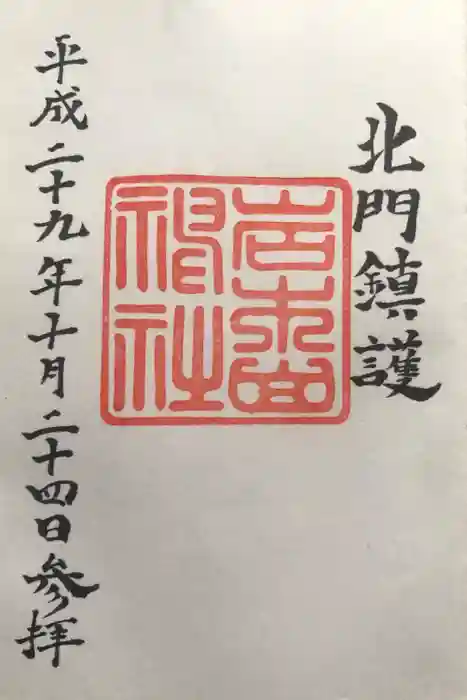 北門鎮護
岩木山
神社
平成二十九年十月二十四日参拝